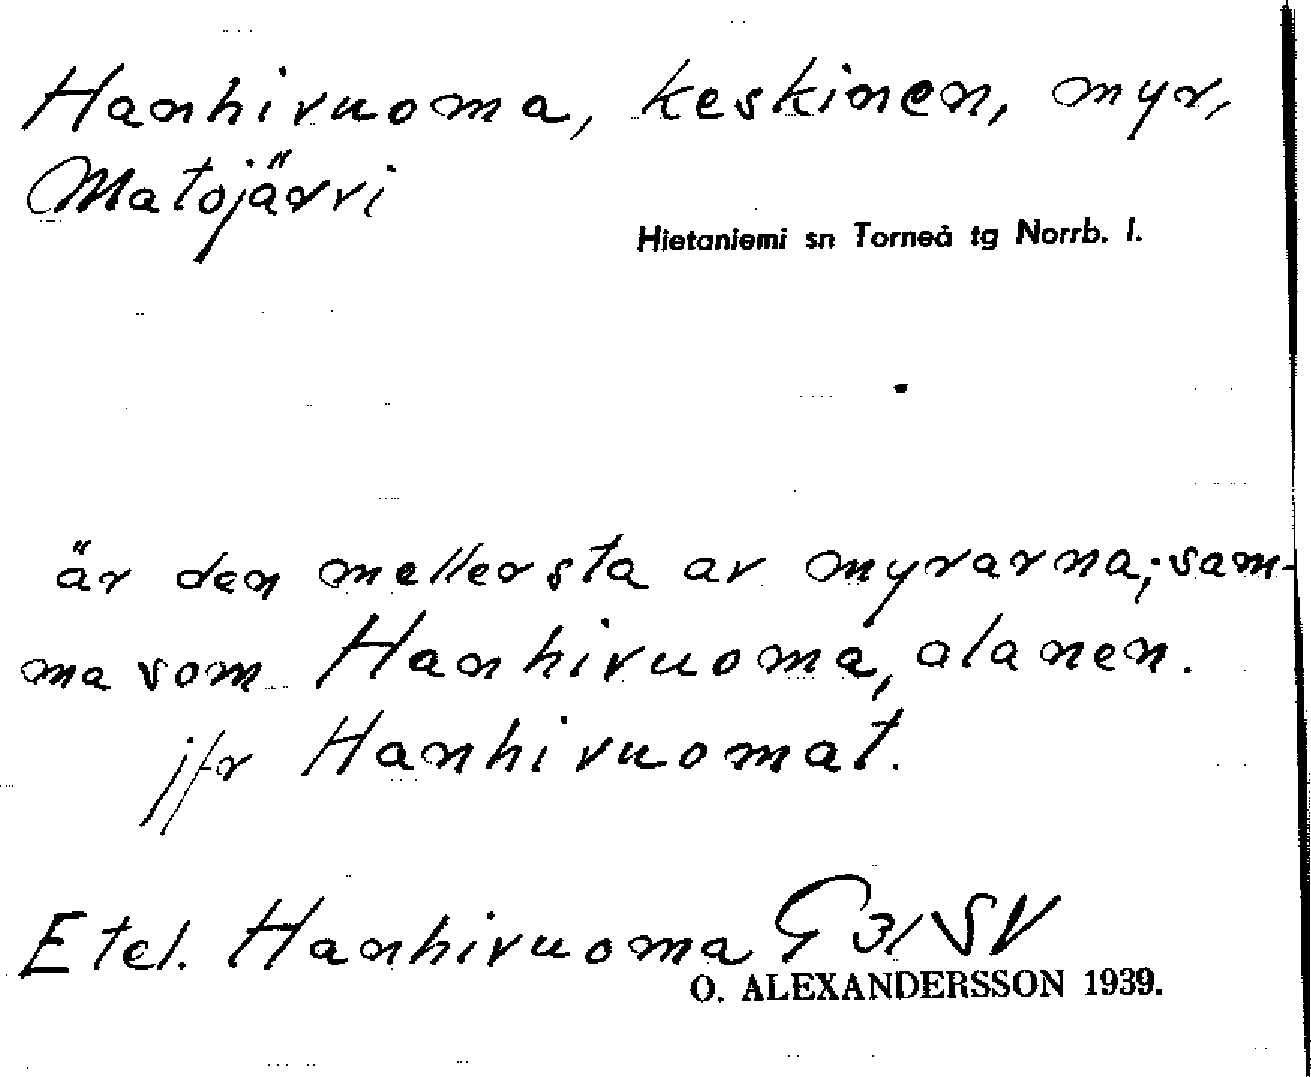 Hanhivuoma, keskinen, myr,
Matojärvi
Hietaniemi sn Torneå tg Norrb. l.
är den mellersta av myrarna; sam-
ma som Hanhivuoma, alanen.
jfr Hanhivuomat.
Etel. Hanhivuoma G 31 SV
O. ALEXANDERSSON 1939.